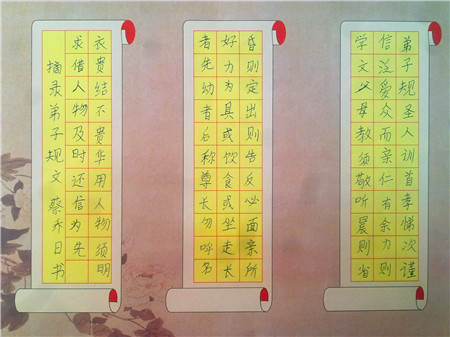 弟子规圣人训首孝悌次谨
信泛爱众而亲仁有余力则
学文父母教须敬听晨则省
昏则定出则告反必面亲所
好力为具或饮食或坐走长
者先幼者后称尊长勿呼名
衣贵结不贵华用人物须明
求借人物及时还信为先
摘录弟子规文 蔡乔日书